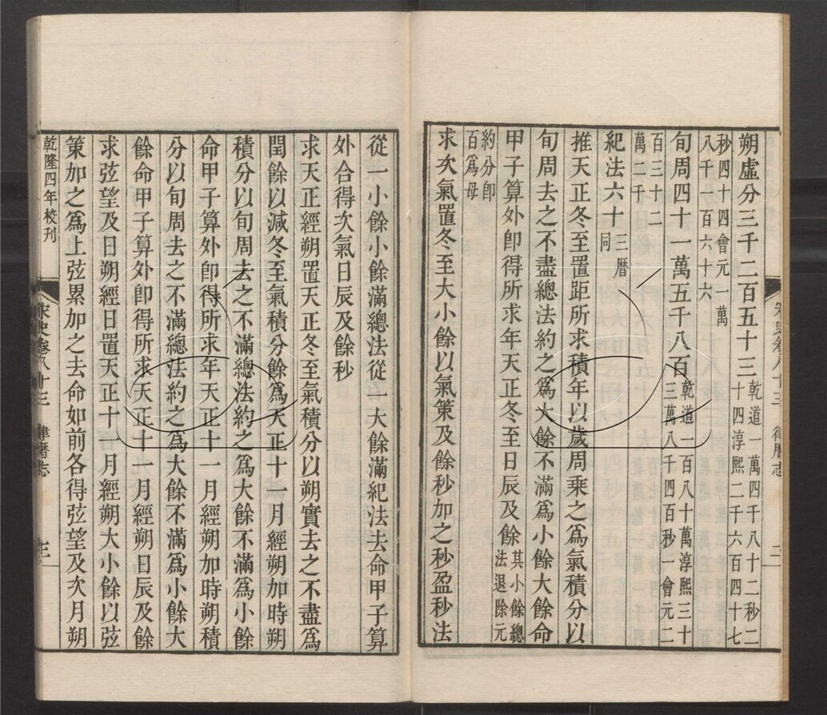 朔虛分三千二百五十三乾道一萬四千八十二秒二
十四淳熙二千六百四十七
秒四十四會元一萬
八千一百六十六
旬周四十一萬五千八百乾道一百八十萬淳熙三十
三萬八千四百秒一會元二
百三十二
萬二千
紀法六十三曆
同
推天正冬至置距所求積年以歲周乘之爲氣積分以
旬周去之不盡總法約之爲大餘不滿爲小餘大餘命
甲子算外卽得所求年天正冬至日辰及餘其小餘總
法退除元
約分卽
百爲母
求次氣置冬至大小餘以氣策及餘秒加之秒盈秒法
宋史卷八十三 律曆志 三
從一小餘小餘滿總法從一大餘滿紀法去命甲子算
外合得次氣日辰及餘秒
求天正經朔置天正冬至氣積分以朔實去之不盡爲
閏餘以減冬至氣積分餘爲天正十一月經朔加時朔
積分以旬周去之不滿總法約之爲大餘不滿爲小餘
命甲子算外卽得所求年天正十一月經朔加時朔積
分以旬周去之不滿總法約之爲大餘不滿爲小餘大
餘命甲子算外卽得所求天正十一月經朔日辰及餘
求弦望及日朔經日置天正十一月經朔大小餘以弦
策加之爲上弦累加之去命如前各得弦望及次月朔
乾隆四年校刊 宋史卷八十三 律曆志